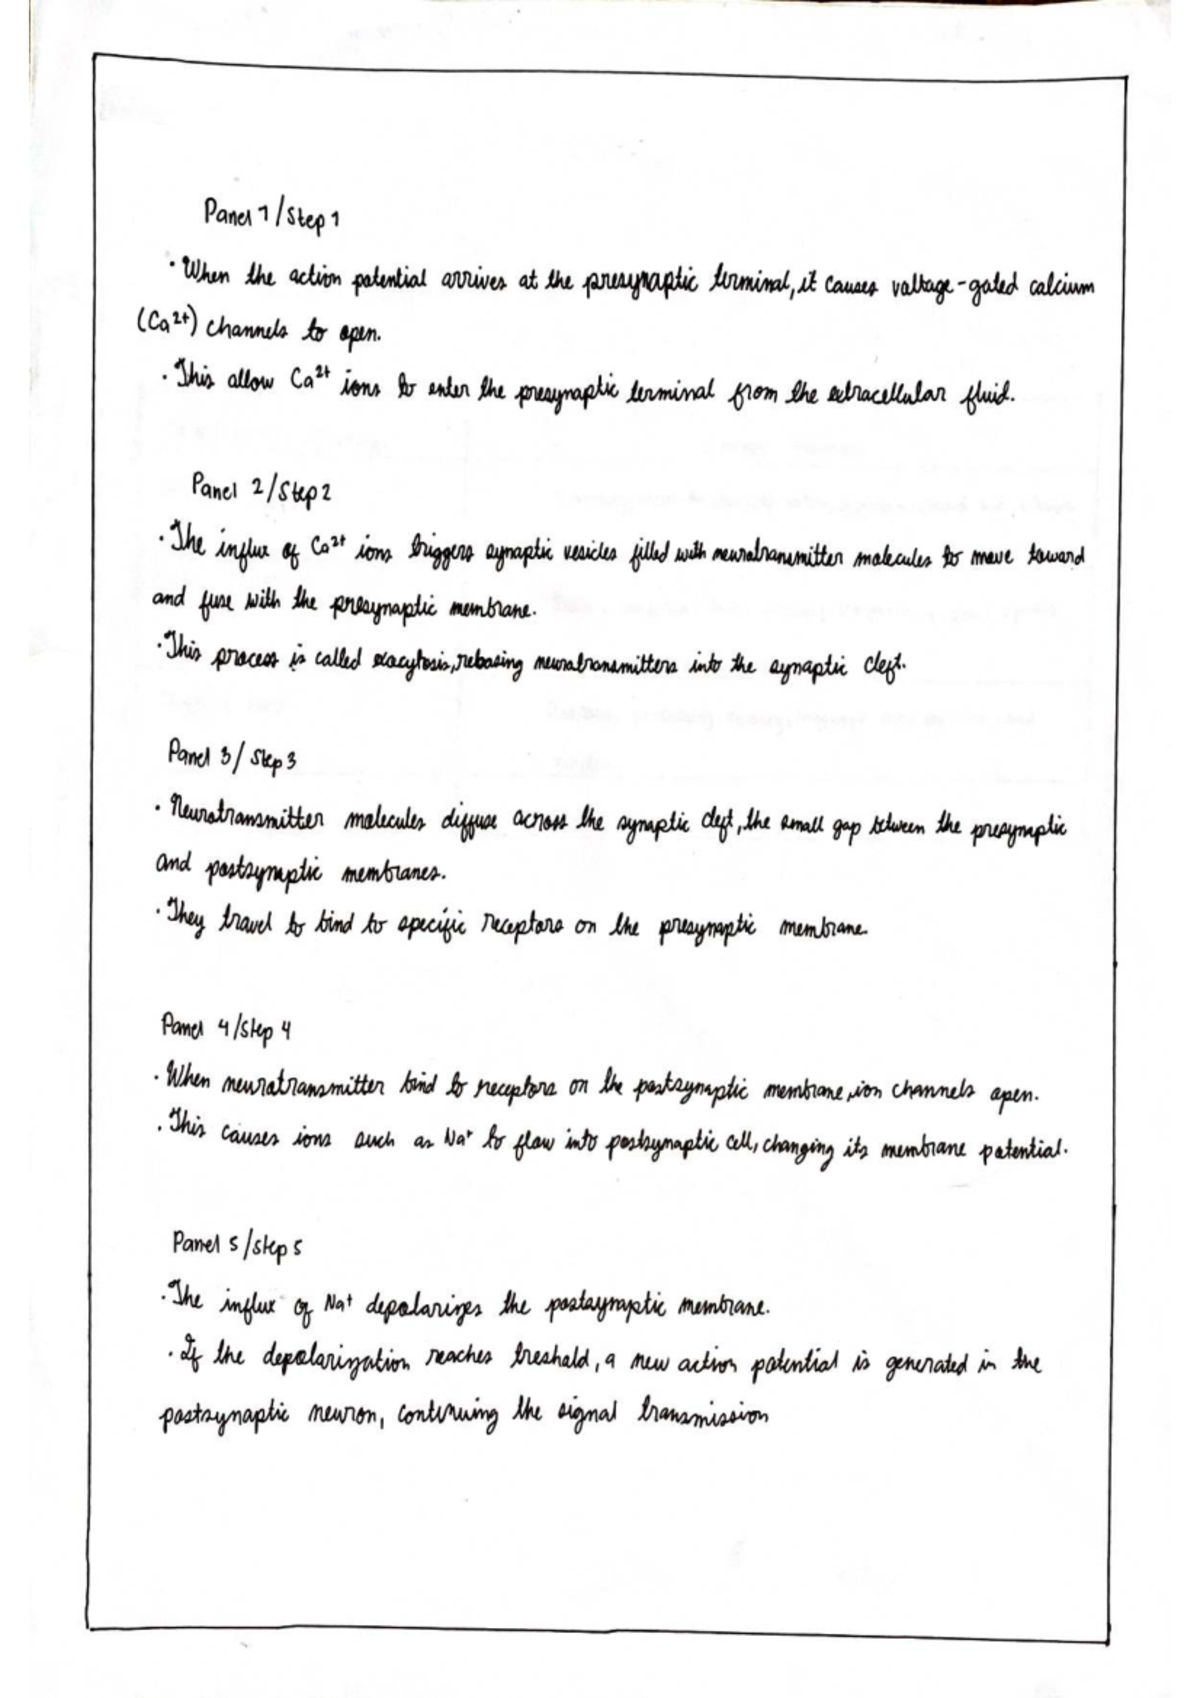 Panel 1/Step 1
· When the action potential arrives at the presynaptic terminal, it causes voltage-gated calcium
(Ca²⁺) channels to open.
· This allow Ca²⁺ ions to enter the presynaptic terminal from the extracellular fluid.
Panel 2/Step 2
· The influx of Ca²⁺ ions triggers synaptic vesicles filled with neurotransmitter molecules to move toward
and fuse with the presynaptic membrane.
· This process is called exocytosis, releasing neurotransmitters into the synaptic cleft.
Panel 3/ Step 3
· Neurotransmitter molecules diffuse across the synaptic cleft, the small gap between the presynaptic
and postsynaptic membranes.
· They travel to bind to specific receptors on the presynaptic membrane.
Panel 4/Step 4
· When neurotransmitter bind to receptors on the postsynaptic membrane, ion channels open.
· This causes ions such as Na⁺ to flow into postsynaptic cell, changing its membrane potential.
Panel 5/step 5
· The influx of Na⁺ depolarizes the postsynaptic membrane.
· If the depolarization reaches treshold, a new action potential is generated in the
postsynaptic neuron, continuing the signal transmission